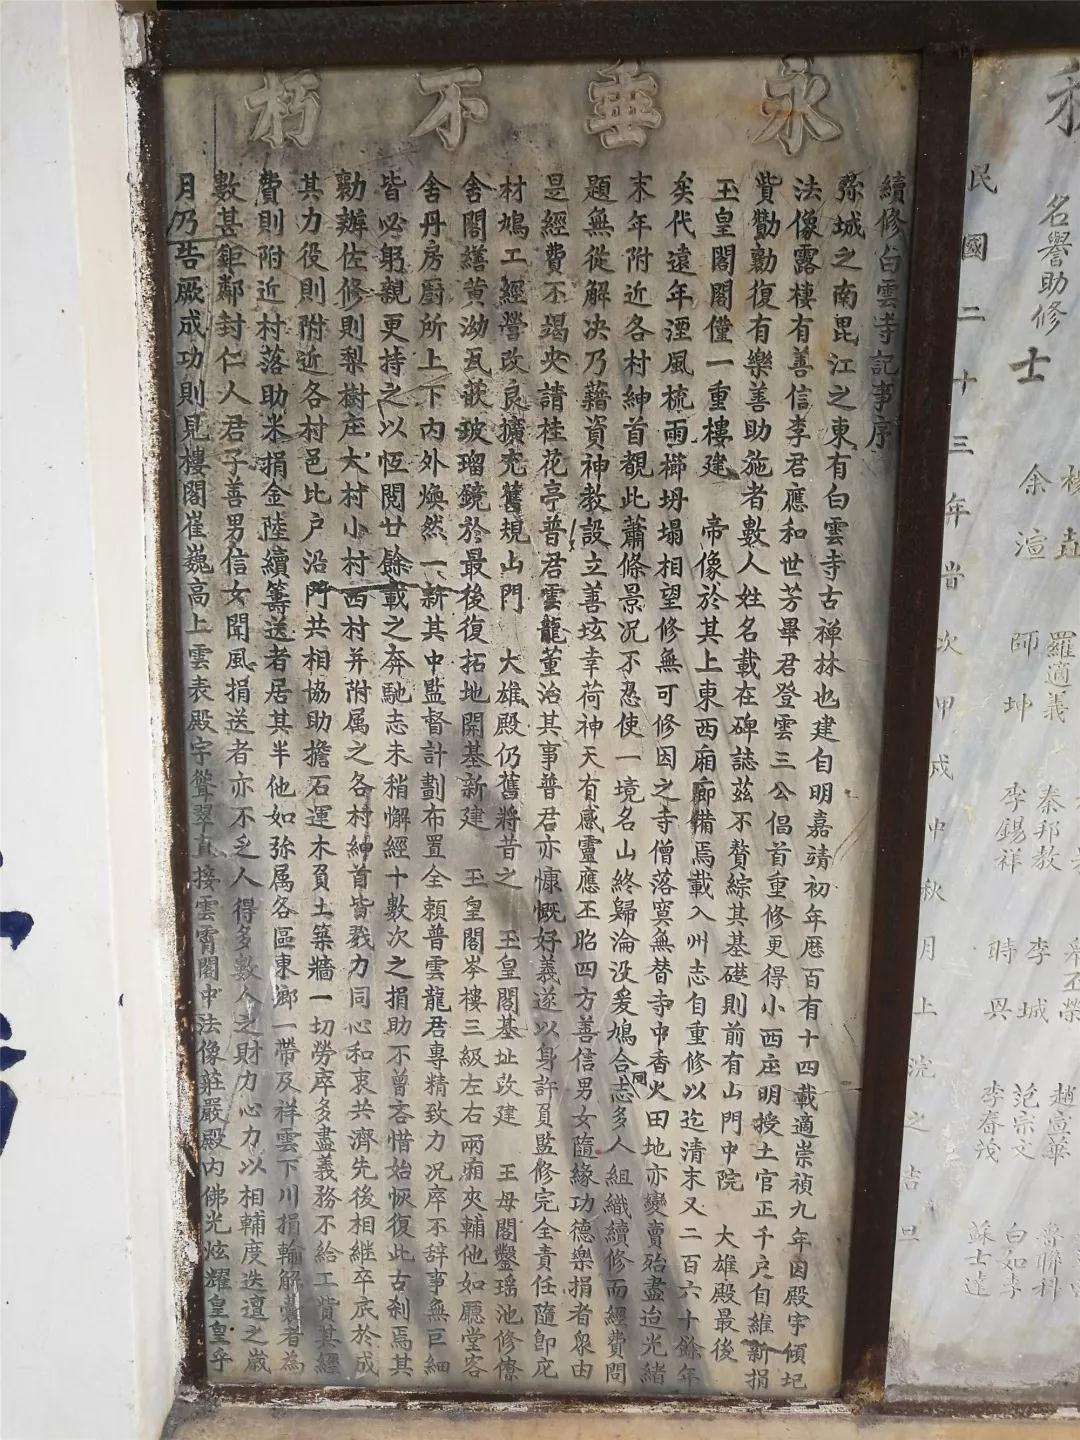 永垂不朽
續修白雲寺記事序
弥城之南毘江之東有白雲寺古禅林也建自明嘉靖初年歷百有十四載適崇禎九年因殿宇傾圮
法像露棲有善信李君應和世芳畢君登雲三公倡首重修更得小西庄明授土官正千户自維新捐
貲勷勸復有樂善助施者數人姓名載在碑誌茲不贅綜其基礎則前有山門中院 大雄殿最後
玉皇閣閣僅一重樓建 帝像於其上東西廂廊備焉載入州志自重修以迄清末又二百六十餘年
矣代遠年湮風梳雨櫛坍塌相望修無可修因之寺僧落寞無替寺中香火田地亦變賣殆盡迨光緒
末年附近各村紳首覩此蕭條景况不忍使一境名山終歸淪没爰鳩合同志多人組織續修而經費問
題無從解决乃藉資神教設立善坛幸荷神天有感靈應丕昭四方善信男女隨緣功德樂捐者衆由
是經費不竭央請桂花亭普君雲龍董治其事普君亦慷慨好義遂以身許負監修完全責任隨即庀
材鳩工經營改良擴充舊規山門 大雄殿仍舊將昔之 玉皇閣基址改建 王母閣鑿瑶池修僚
舍閣繕黄泑瓦嵌玻瑠鏡於最後復拓地開基新建 玉皇閣岑樓三級左右兩廂夾輔他如廳堂客
舍丹房厨所上下内外煥然一新其中監督計劃布置全頼普雲龍君專精致力况卒不辞事無巨細
皆必躬親更持之以恆閱廿餘載之奔馳志未稍懈經十數次之捐助不曾吝惜始恢復此古刹焉其
勷辦佐修則梨樹庄大村小村西村并附属之各村紳首皆戮力同心和衷共濟先後相継卒底於成
其力役則附近各村邑比户沿門共相協助擔石運木負土築牆一切勞瘁多盡義務不給工貲其經
費則附近村落助米捐金陸續籌送者居其半他如弥属各區東鄉一帶及祥雲下川捐輸解囊者為
數甚鉅鄰封仁人君子善男信女聞風捐送者亦不乏人得多數人之財力心力以相輔度迭遭之歲
月乃告厥成功則見樓閣崔巍高上雲表殿宇聳翠直接雲霄閣中法像莊嚴殿内佛光炫耀皇皇乎
名譽助修士
余渲 師坤 李錫祥 時興 李春茂 蘇士達
羅適義 秦邦教 李城 范宗文 白如李
趙宣華 魯聯科
民國二十三年岁次甲戍中秋月上浣之吉旦